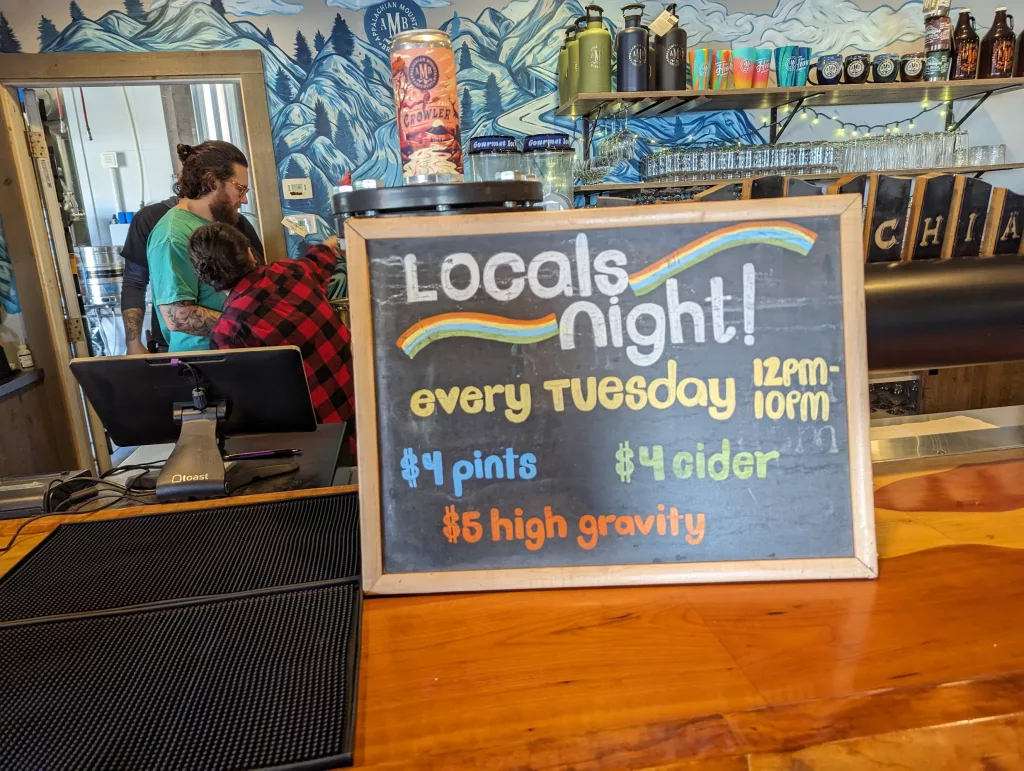 APPALACHIAN MOUNTAIN
AMB
AMB
CROWLER
Gourmet
Gourmet
CHIA
Locals
Night!
every Tuesday
12pm-
10pm
$4 pints
$4 cider
$5 high gravity
toast